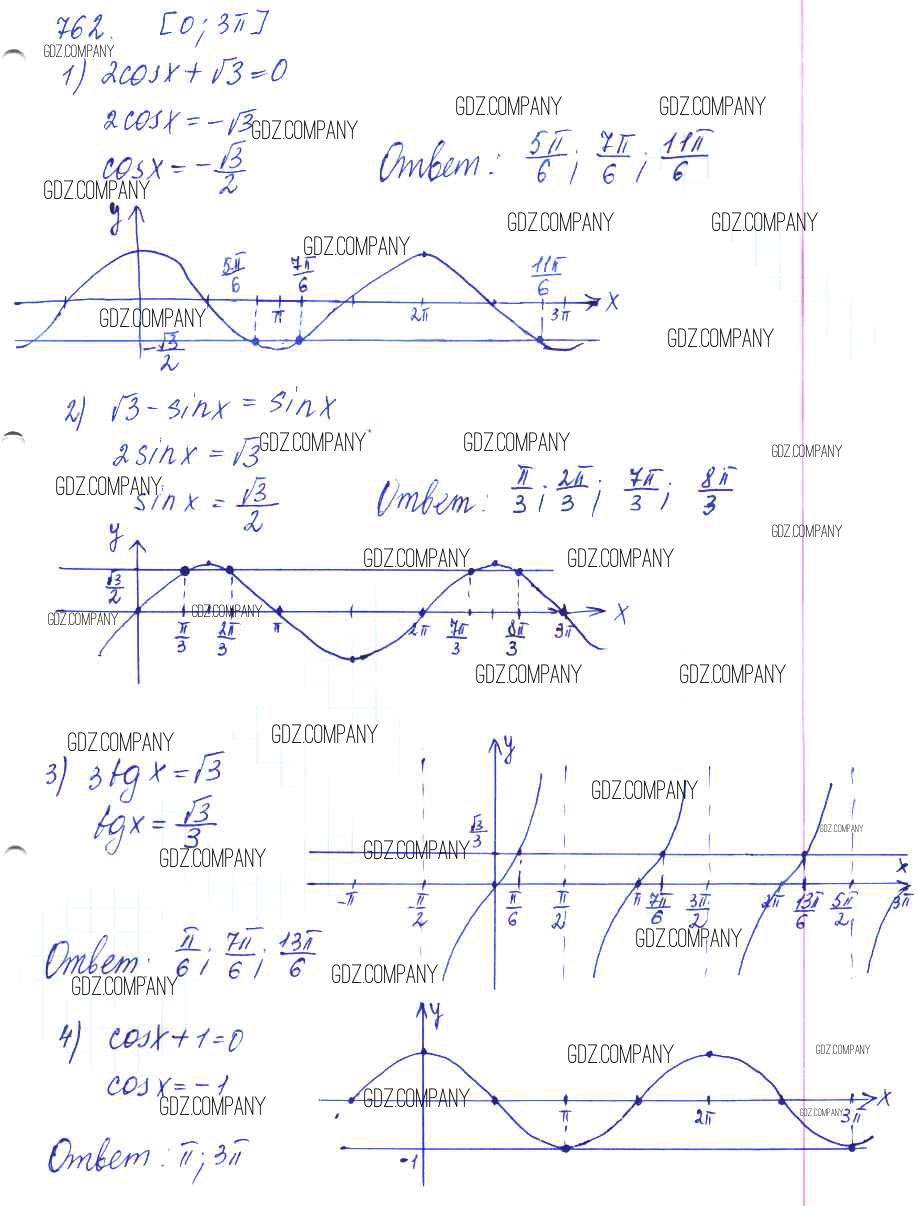 762. [0; 3π]
GDZ.COMPANY
1) 2cosx + √3 = 0
2cosx = -√3
GDZ.COMPANY
GDZ.COMPANY
GDZ.COMPANY
cosx = -√3/2
Ответ: 5π/6; 7π/6; 11π/6
GDZ.COMPANY
y
GDZ.COMPANY
GDZ.COMPANY
GDZ.COMPANY
5π/6 7π/6 11π/6
π 2π 3π x
GDZ.COMPANY
-√3/2
GDZ.COMPANY
2) √3 - sinx = sinx
2sinx = √3
GDZ.COMPANY
GDZ.COMPANY
GDZ.COMPANY
GDZ.COMPANY
sinx = √3/2
Ответ: π/3; 2π/3; 7π/3; 8π/3
GDZ.COMPANY
y
GDZ.COMPANY
GDZ.COMPANY
√3/2
GDZ.COMPANY
GDZ.COMPANY
x
π/3 2π/3 π 2π 7π/3 8π/3 3π
GDZ.COMPANY
GDZ.COMPANY
GDZ.COMPANY
GDZ.COMPANY
3) 3tgx = √3
y
GDZ.COMPANY
tgx = √3/3
√3/3
GDZ.COMPANY
GDZ.COMPANY
GDZ.COMPANY
x
-π π/2 π/6 π/2 π 7π/6 3π/2 2π 13π/6 5π/2 3π
GDZ.COMPANY
Ответ: π/6; 7π/6; 13π/6
GDZ.COMPANY
GDZ.COMPANY
4) cosx + 1 = 0
y
GDZ.COMPANY
GDZ.COMPANY
cosx = -1
GDZ.COMPANY
GDZ.COMPANY
GDZ.COMPANY
π 2π 3π x
-1
Ответ: π; 3π